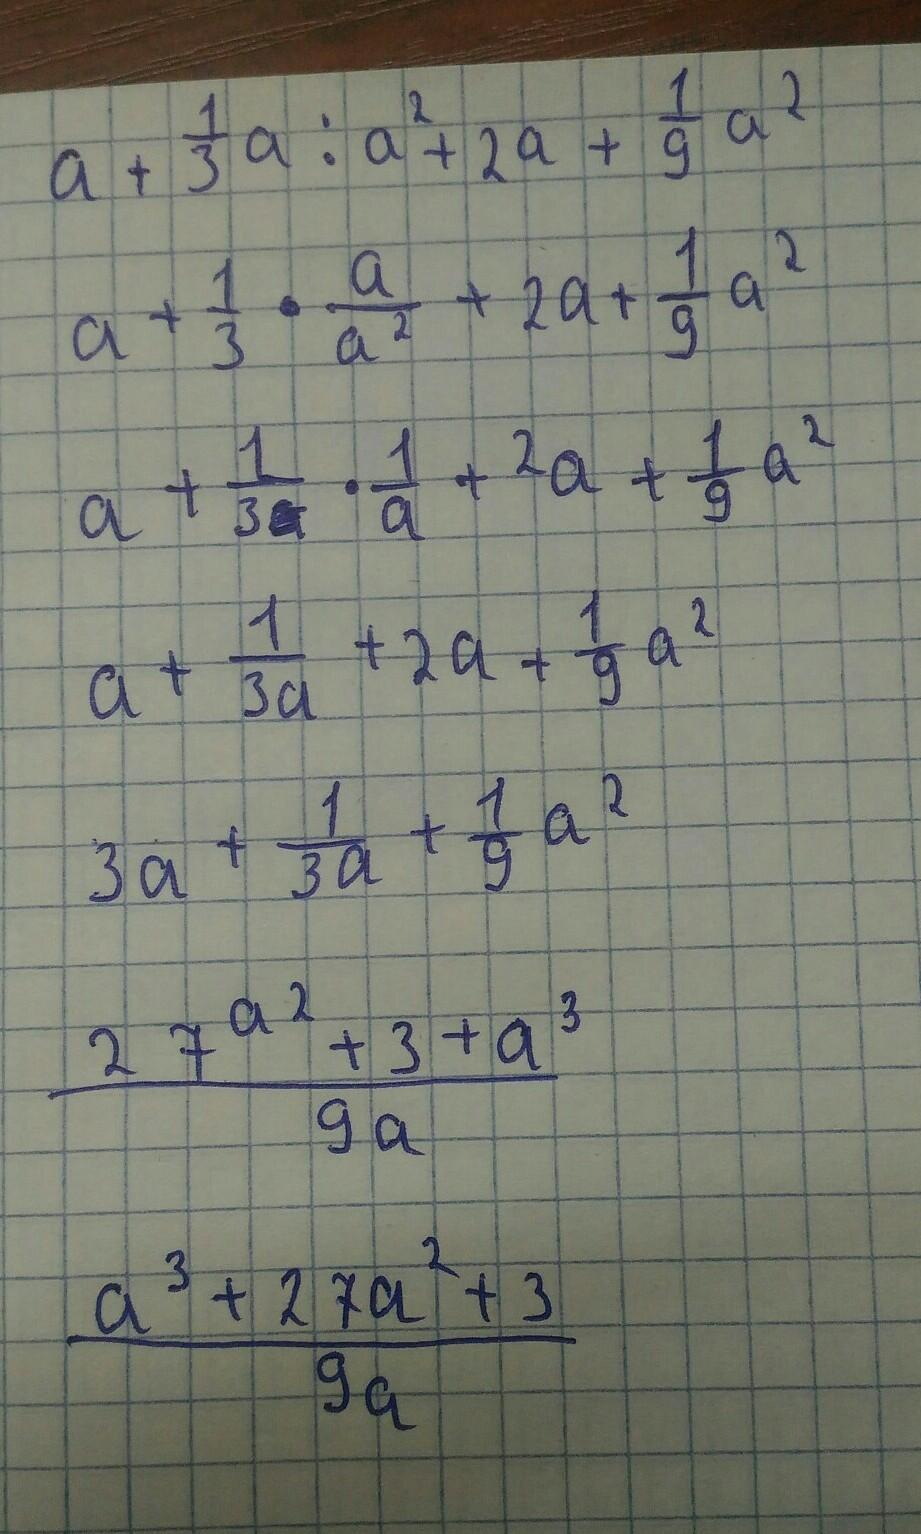 a + 1/3 a : a² + 2a + 1/9 a²
a + 1/3 · a/a² + 2a + 1/9 a²
a + 1/3 · 1/a + 2a + 1/9 a²
a + 1/3a + 2a + 1/9 a²
3a + 1/3a + 1/9 a²
27a² + 3 + a³
9a
a³ + 27a² + 3
9a